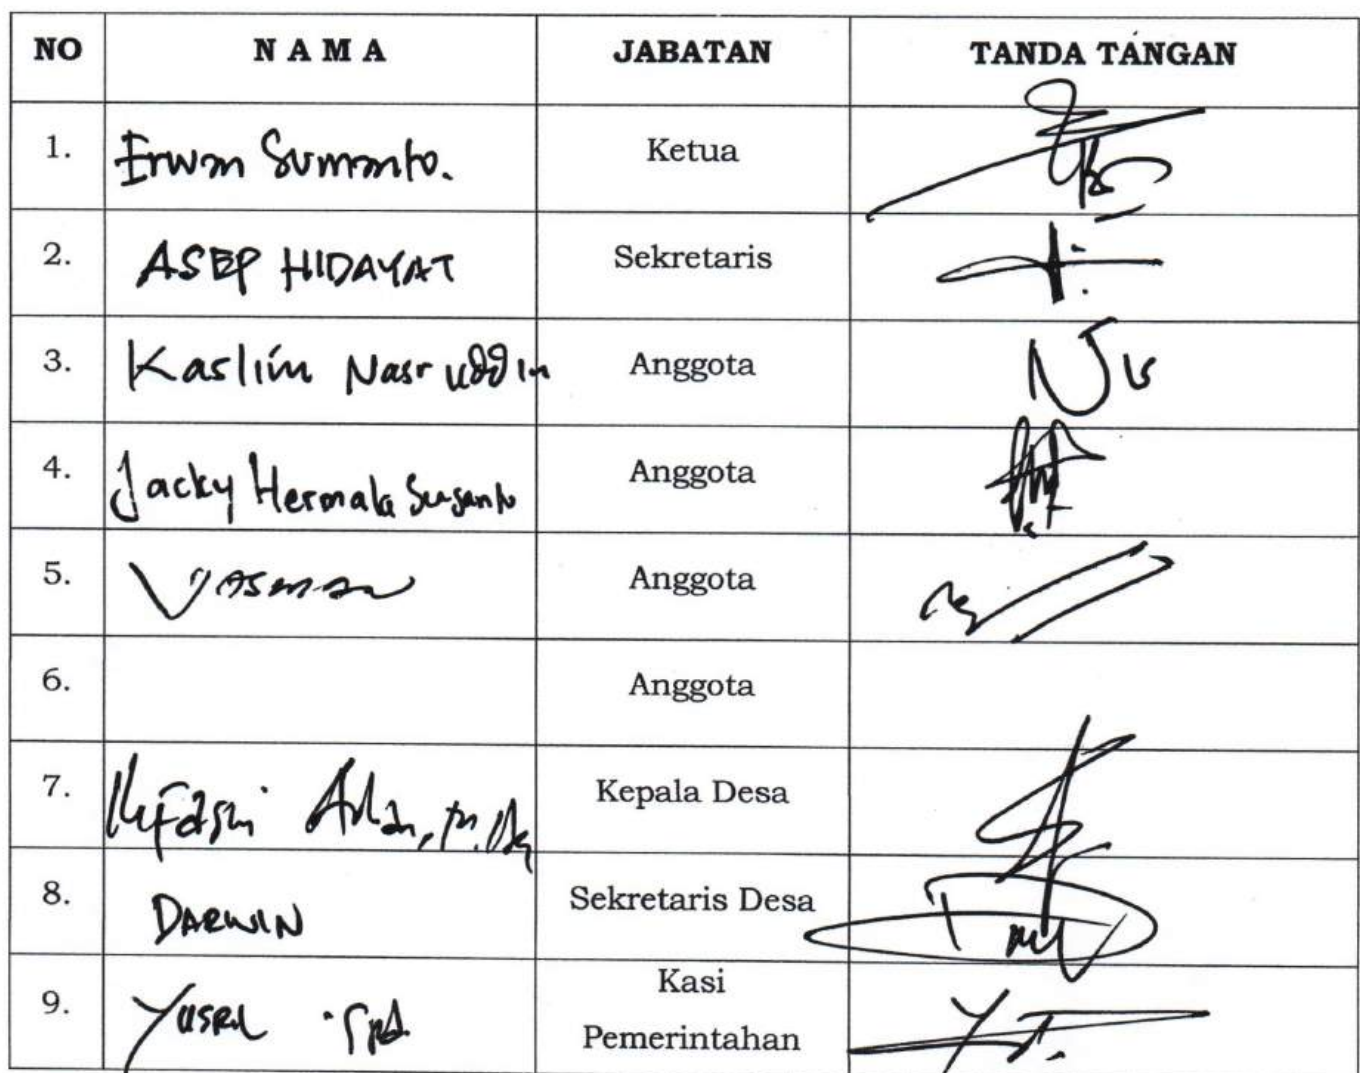 NO N A M A JABATAN TANDA TANGAN
1. Erwan Sumanto. Ketua
2. ASEP HIDAYAT Sekretaris
3. Kaslim Nasruddin Anggota
4. Jacky Hermala Susanto Anggota
5. YASMAN Anggota
6. Anggota
7. Kepala Desa
8. DARWIN Sekretaris Desa
9. YUSRIL SPd. Kasi
Pemerintahan